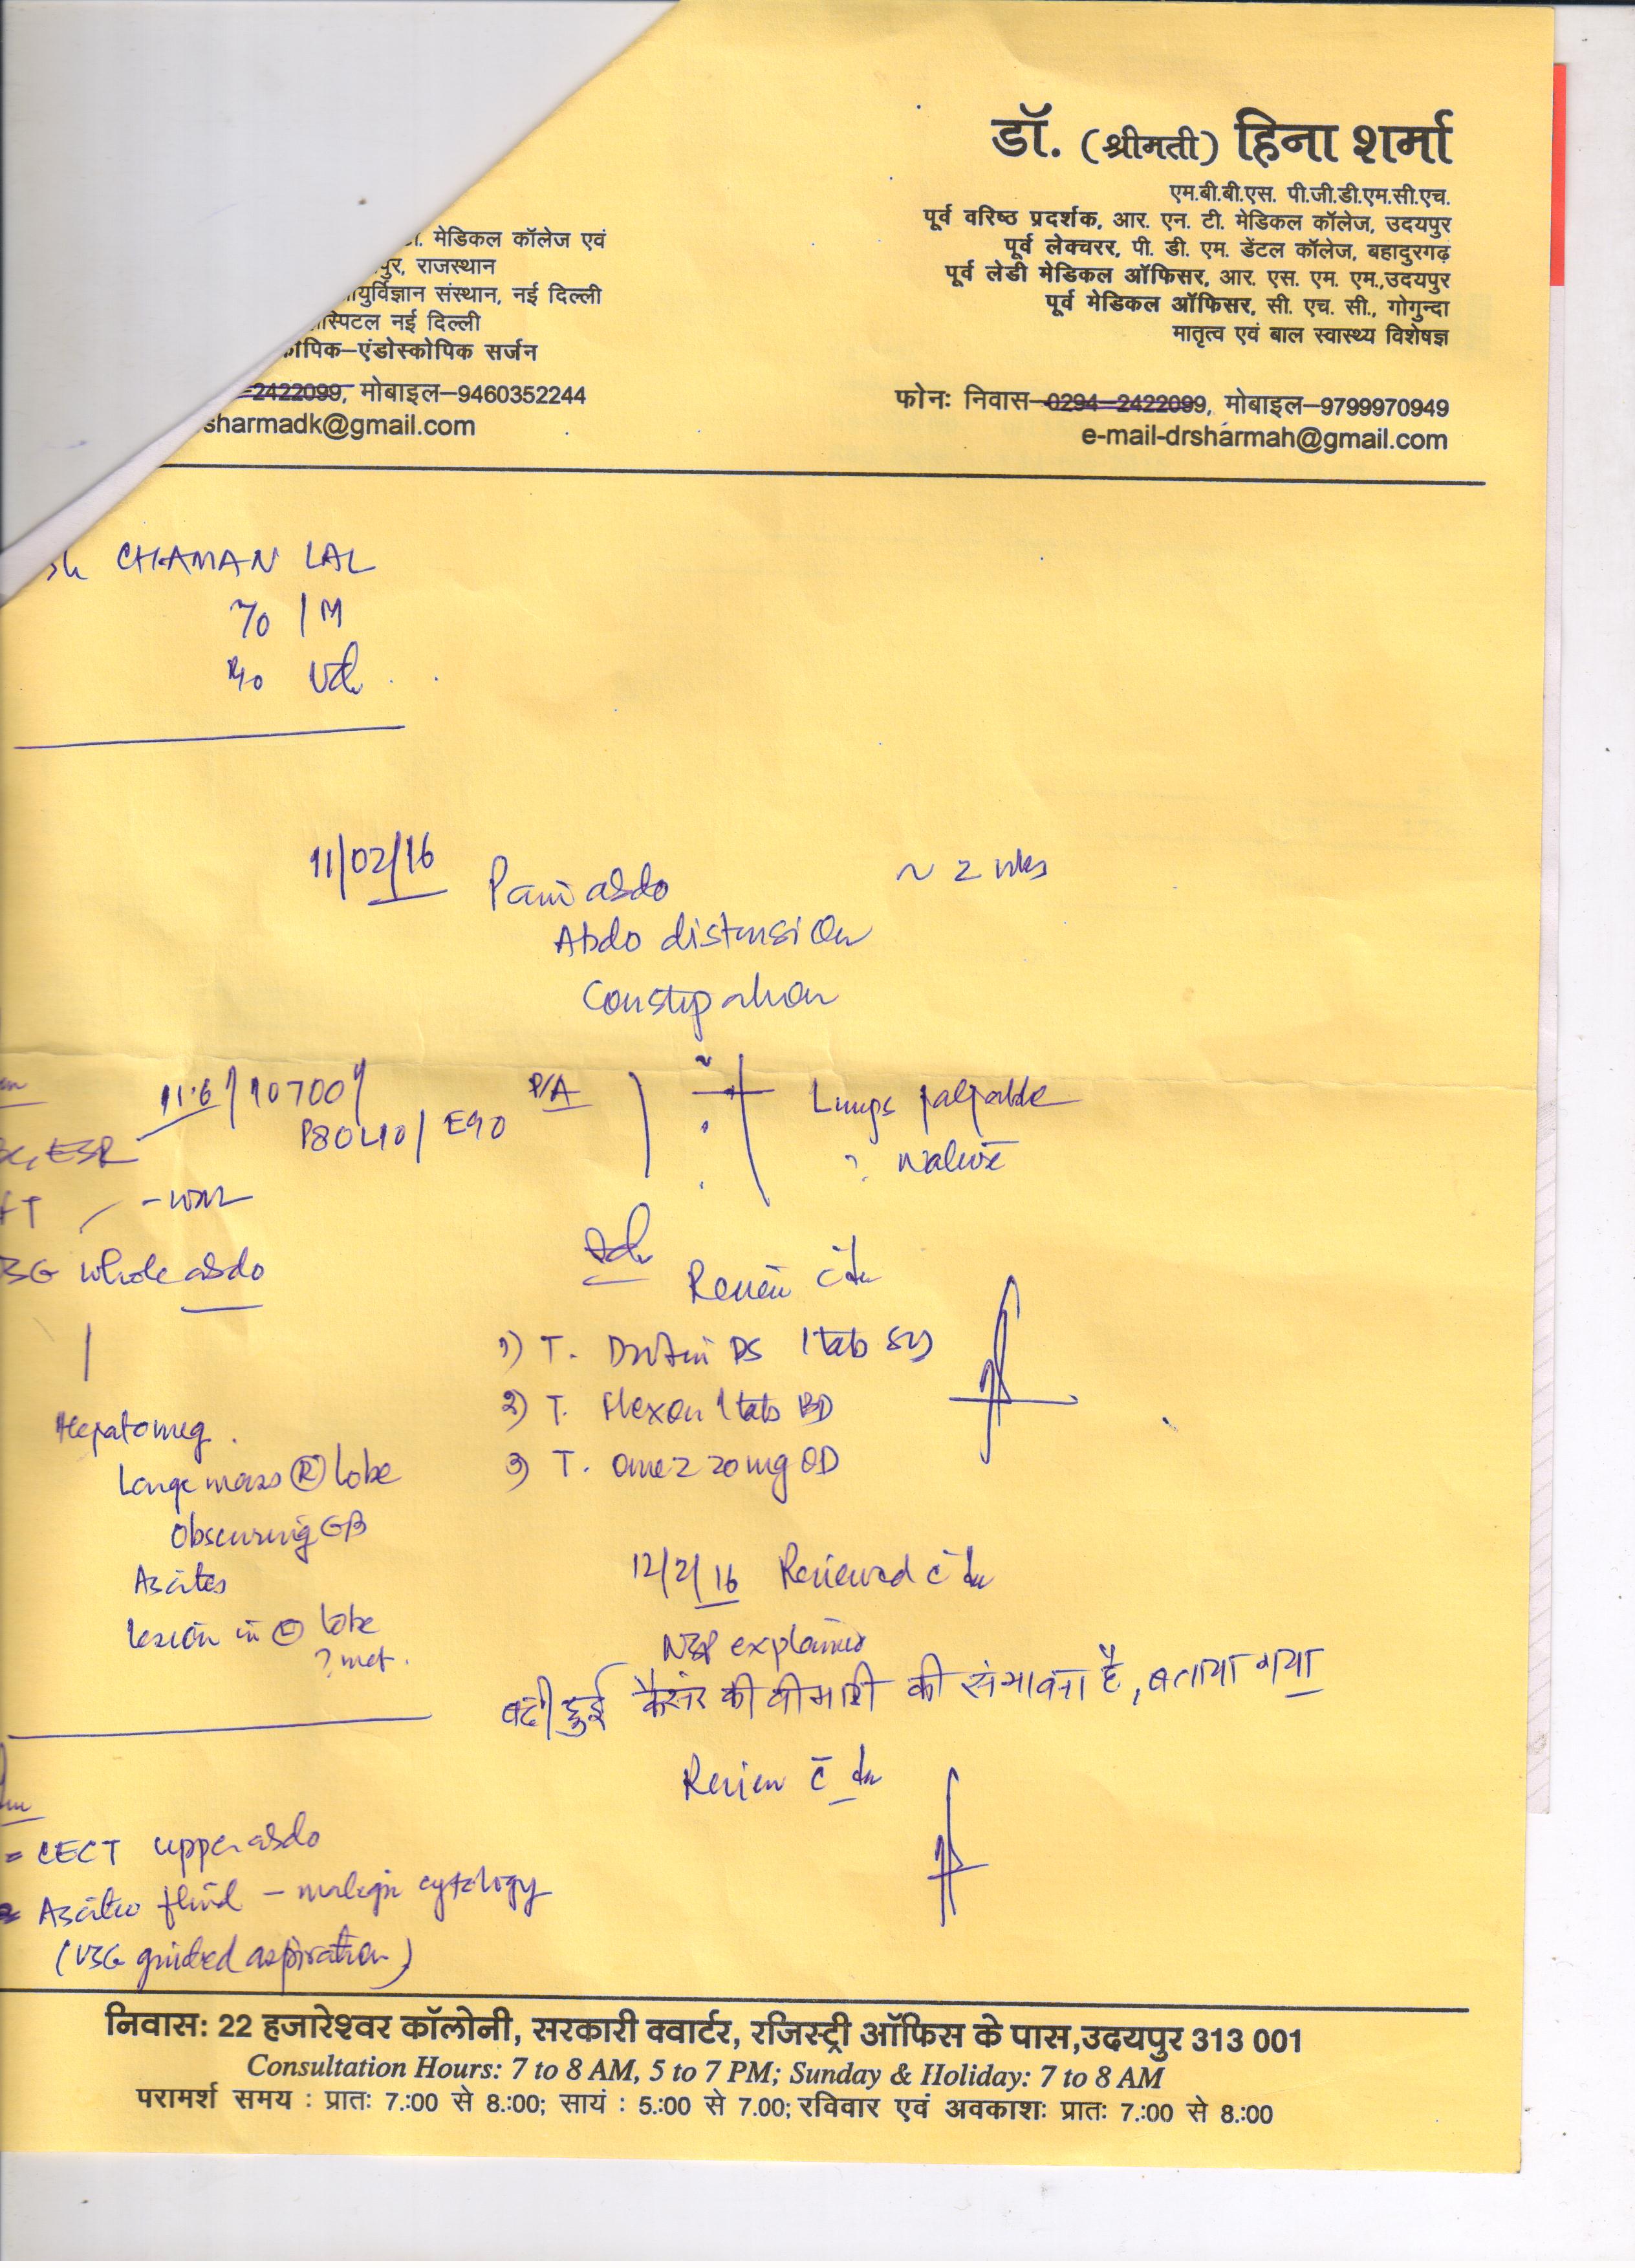 डॉ. (श्रीमती) हिना शर्मा
एम.बी.बी.एस. पी.जी.डी.एम.सी.एच.
पूर्व वरिष्ठ प्रदर्शक, आर. एन. टी. मेडिकल कॉलेज, उदयपुर
पूर्व लेक्चरर, पी. डी. एम. डेंटल कॉलेज, बहादुरगढ़
पूर्व लेडी मेडिकल ऑफिसर, आर. एस. एम. एम.,उदयपुर
पूर्व मेडिकल ऑफिसर, सी. एच. सी., गोगुन्दा
मातृत्व एवं बाल स्वास्थ्य विशेषज्ञ
फोनः निवास–0294–2422099, मोबाइल–9799970949
e-mail-drsharmah@gmail.com
मेडिकल कॉलेज एवं
राजस्थान
संस्थान, नई दिल्ली
नई दिल्ली
–एंडोस्कोपिक सर्जन
2422099, मोबाइल–9460352244
sharmadk@gmail.com
CHAMAN LAL
70 / M
11/02/16 Pain abdo ~ 2 wks
Abdo distension
Constipation
11.6 / 10700 /
P80 L10 / E90
P/A
Lumps palpable
ESR
whole abdo
Review c̄
1) T. DS 1 tab
2) T. Flexon 1 tab BD
3) T. Omez 20mg OD
Hepatomeg.
Large mass Ⓡ lobe
Obscuring GB
Ascites
Lesion in Ⓛ lobe
? met.
12/2/16 Reviewed c̄
explained
बढी हुई कैंसर की बीमारी की संभावना है, बताया गया
Review c̄
= CECT upper abdo
= Ascitic fluid – malign cytology
(USG guided aspiration)
निवास: 22 हजारेश्वर कॉलोनी, सरकारी क्वार्टर, रजिस्ट्री ऑफिस के पास,उदयपुर 313 001
Consultation Hours: 7 to 8 AM, 5 to 7 PM; Sunday & Holiday: 7 to 8 AM
परामर्श समय : प्रातः 7.:00 से 8.:00; सायं : 5.:00 से 7.00; रविवार एवं अवकाशः प्रातः 7.:00 से 8.:00